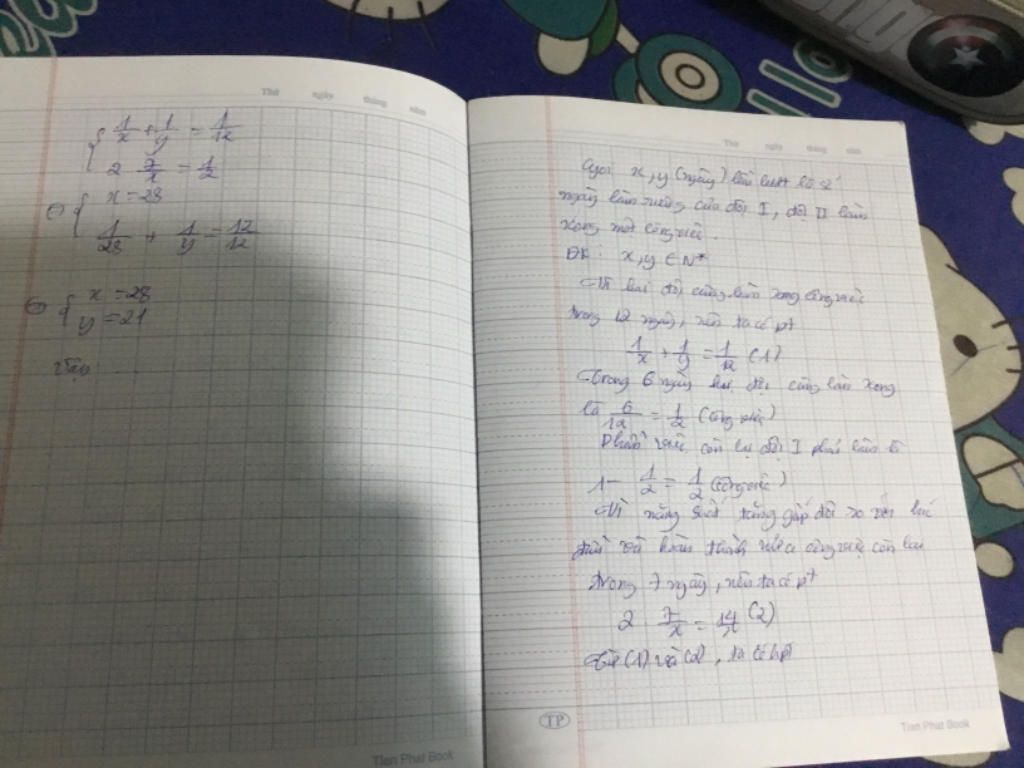 Thứ ngày tháng năm
1/x + 1/y = 1/12
2 7/x = 1/2
⇔ x = 28
1/28 + 1/y = 12/12
⇔ x = 28
y = 21
Vậy
Tien Phat Book
Thứ ngày tháng năm
Gọi x, y (ngày) lần lượt là số
ngày làm riêng của đội I, đội II làm
xong một công việc.
ĐK: x, y ∈ N*
Vì hai đội cùng làm xong công việc
trong 12 ngày, nên ta có pt
1/x + 1/y = 1/12 (1)
Trong 6 ngày hai đội cùng làm xong
là 6/12 = 1/2 (công việc)
Phần việc còn lại đội I phải làm là
1 - 1/2 = 1/2 (công việc)
Vì năng suất tăng gấp đôi so với lúc
đầu và hoàn thành công việc còn lại
trong 7 ngày, nên ta có pt
2 7/x = (2)
Từ (1) và (2), ta có hpt
TP
Tien Phat Book